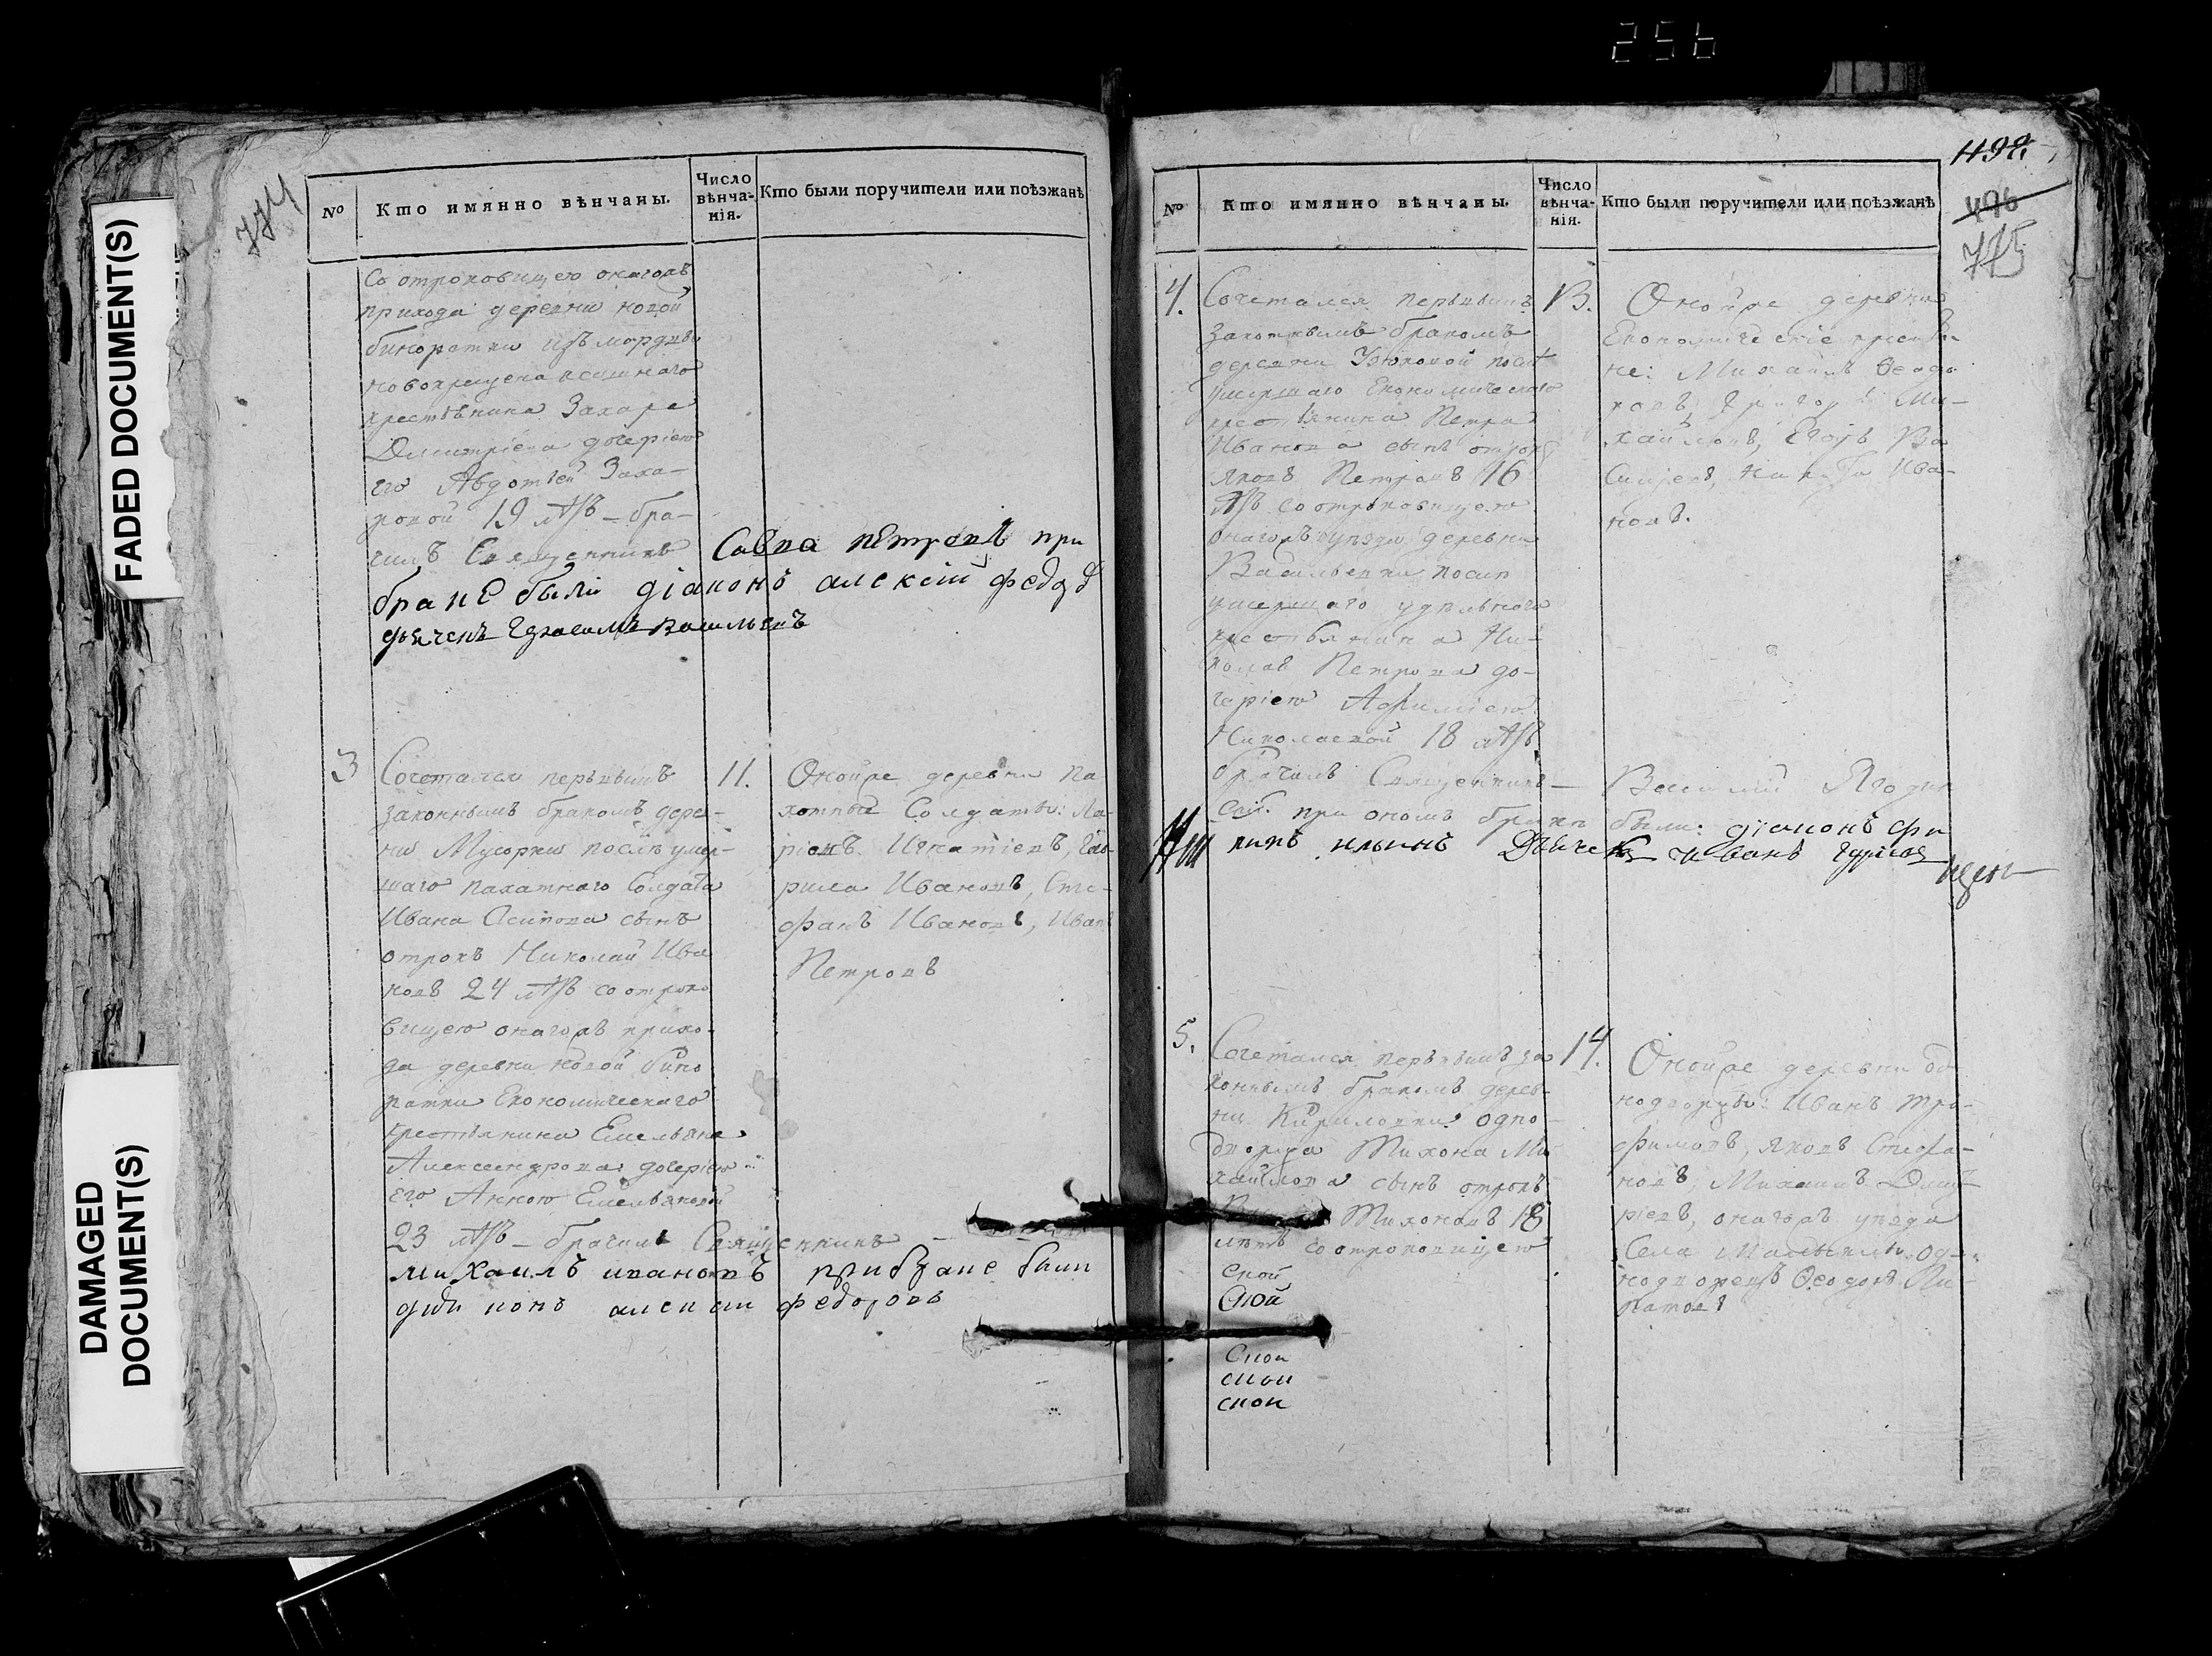 256
FADED DOCUMENT(S)
DAMAGED
DOCUMENT(S)
774
№
Кто имянно вѣнчаны.
Число
вѣнча-
нія.
Кто были поручители или поѣзжанѣ
Со отроковицею онагожъ
прихода деревни новой
биноратки изъ мордвы
новокрещена ясашнаго
крестьянина Захара
Димитріева дочерію
его Авдотьей Заха-
ровой 19 лѣтъ – бра-
чилъ Священникъ Савва Петровъ при
браке были діаконъ алексій федоровъ
дьячекъ васильевъ
3
Сочетался первымъ
законнымъ бракомъ дерев-
ни Мусорки послѣ умер-
шаго пахатнаго Солдата
Ивана Осипова сынъ
отрокъ Николай Ива
новъ 24 лѣтъ со отроко
вицею онагожъ прихо-
да деревни новой бино
ратки Економическаго
крестьянина Емельяна
Александрова дочерію
его Анною Емельяновой
23 лѣтъ – брачилъ Священникъ
михаилъ ивановъ при браке были
алексій федоровъ
11.
Оной же деревни па
хотные Солдаты: Ла-
ріонъ Игнатіевъ, Гав-
рила Ивановъ, Сте-
фанъ Ивановъ, Иванъ
Петровъ
1198.
496
775
№
Кто имянно вѣнчаны.
Число
вѣнча-
нія.
Кто были поручители или поѣзжанѣ
4.
Сочетался первымъ
законнымъ бракомъ
деревни Узюковой послѣ
умершаго Економическаго
крестьянина Петра
Иванова сынъ отрокъ
Яковъ Петровъ 16
лѣтъ со отроковицею
онагожъ уѣзда деревни
Васильевки послѣ
умершаго удѣльнаго
крестьянина Ни-
колая Петрова до-
черію Афиміею
Николаевой 18 лѣтъ
брачилъ Священникъ Василій
при ономъ браке были: діаконъ фи
липъ ильинъ Дьячекъ иванъ
13.
Оной же деревни
Економическіе крестья-
не: Михаилъ Федо
ровъ, Григорій Ми-
хайловъ, Егоръ Ва
сильевъ, Никита Ива-
новъ.
5.
Сочетался первымъ за
коннымъ бракомъ дерев-
ни Кириловки одно-
дворца Тихона Ми
хайлова сынъ отрокъ
Тихоновъ 18
лѣтъ со отроковицею
14.
Оной же деревни од
нодворцы: Иванъ Тро-
фимовъ, Яковъ Стефа-
новъ, Михаилъ Димит
ріевъ, онагожъ уѣзда
Села од-
нодворецъ Феодоръ